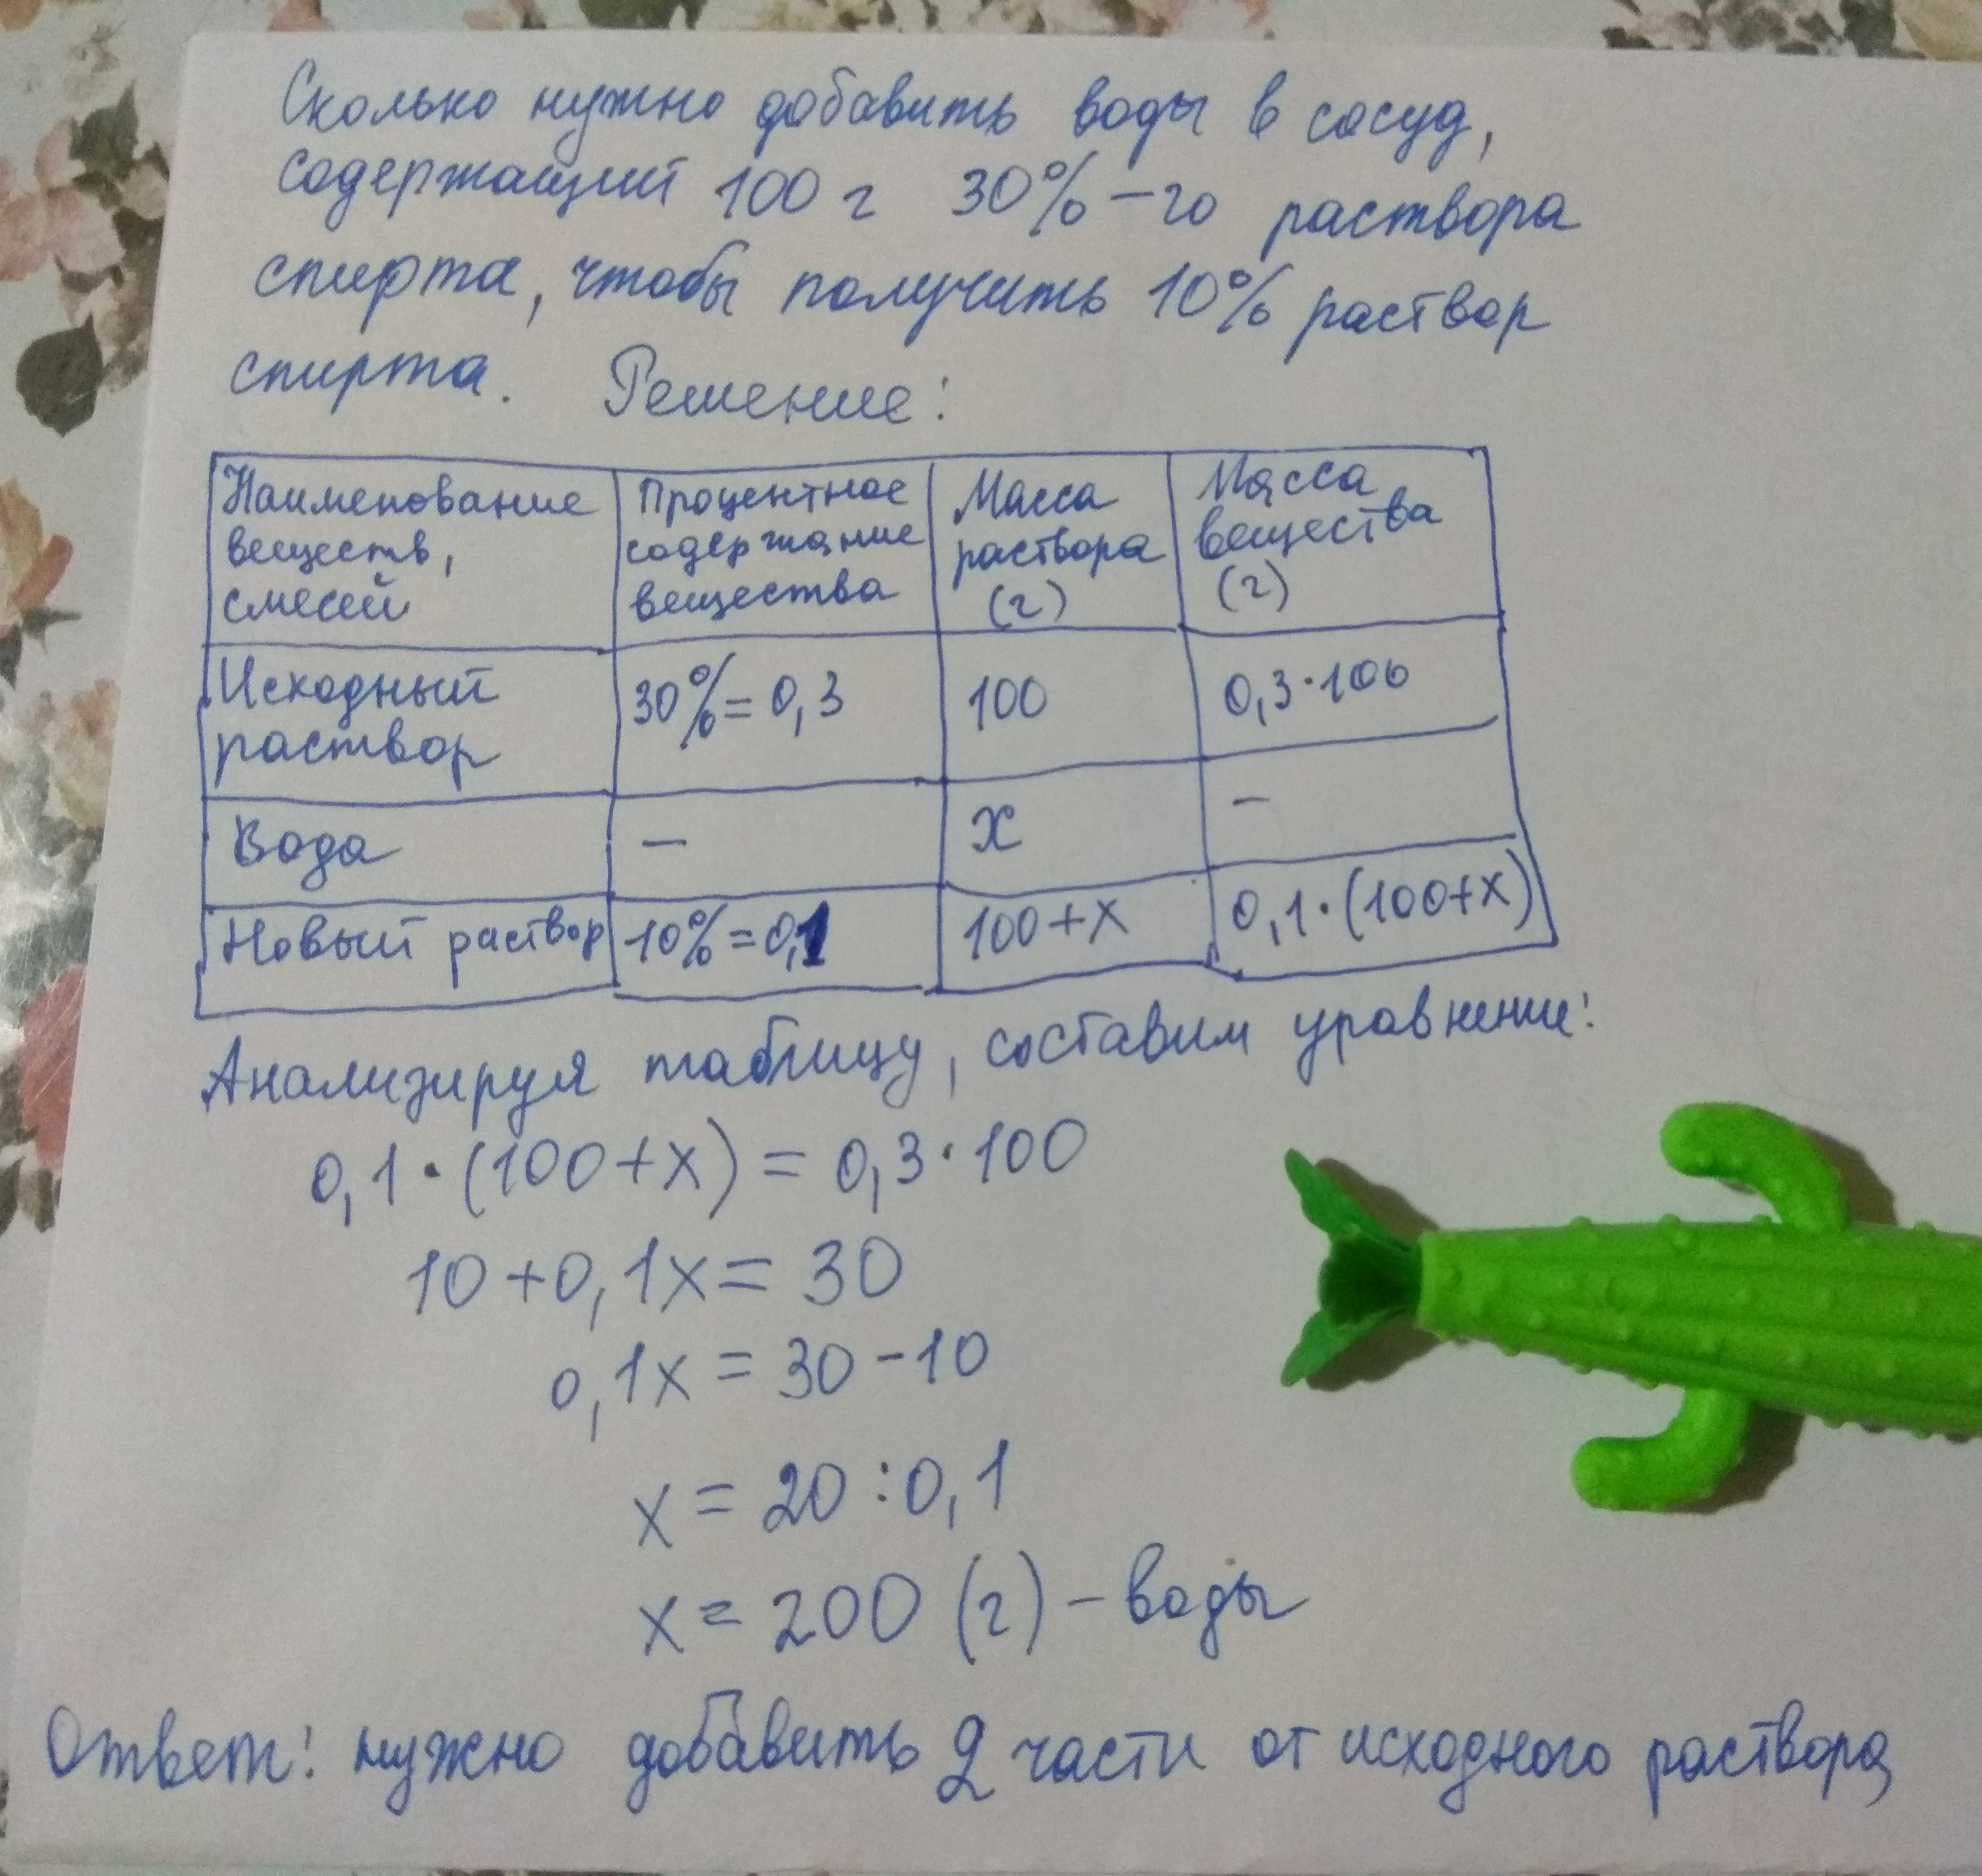 Сколько нужно добавить воды в сосуд,
содержащий 100 г 30%-го раствора
спирта, чтобы получить 10% раствор
спирта. Решение:
Наименование веществ, смесей | Процентное содержание вещества | Масса раствора (г) | Масса вещества (г)
Исходный раствор | 30% = 0,3 | 100 | 0,3·100
Вода | – | x | –
Новый раствор | 10% = 0,1 | 100+x | 0,1·(100+x)
Анализируя таблицу, составим уравнение:
0,1·(100+x) = 0,3·100
10+0,1x = 30
0,1x = 30-10
x = 20:0,1
x = 200 (г) – воды
Ответ: нужно добавить 2 части от исходного раствора